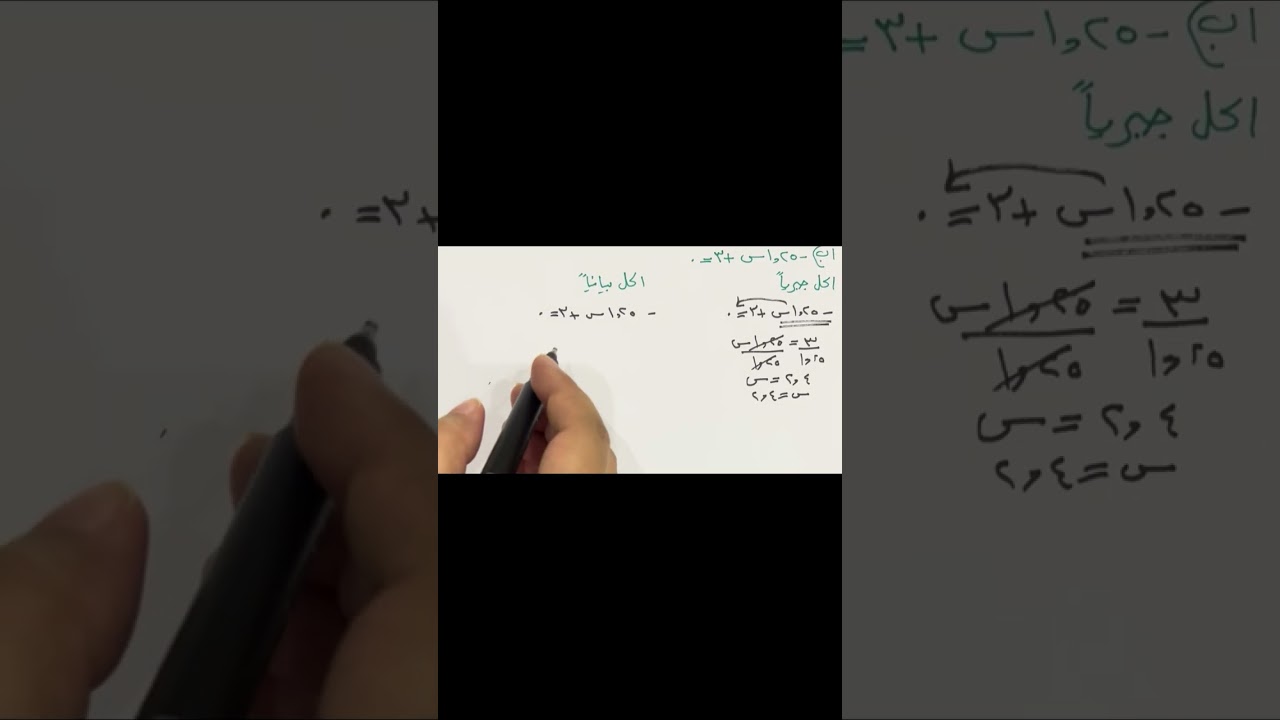 ١ب) -١,٢٥س +٣=٠
الحل جبرياً
-١,٢٥س +٣=٠
٣/١,٢٥ = ١,٢٥س/١,٢٥
٢,٤ = س
س = ٢,٤
الحل بيانياً
-١,٢٥س +٣=٠